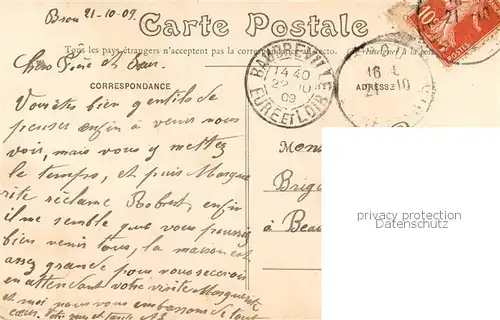 Brou 21-10-09.
Carte Postale
Tous les pays étrangers n'acceptent pas la correspondance au recto.
Chers Père et Sœur.
CORRESPONDANCE
ADRESSE
BAUDREVILLE
14 40
22 10
09
EURE ET LOIR
16
21 10
10c
POSTES
Vous êtes bien gentils de
penser enfin à venir nous
voir, mais vous y mettez
le temps, et puis Margue
rite réclame Robert, enfin
il me semble que vous pourriez
bien venir tous, la maison est
assez grande pour vous recevoir
en attendant votre visite Marguerite
et moi nous vous embrassons de tout
cœur.
Mons
Briga
à Beau
privacy protection
Datenschutz